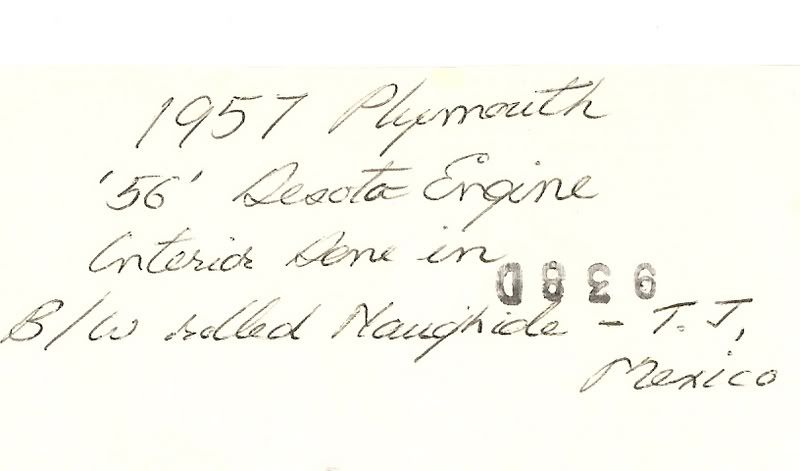 1957 Plymouth
'56' Desoto Engine
Interior Done in
B/W rolled Naughide - T.J,
Mexico